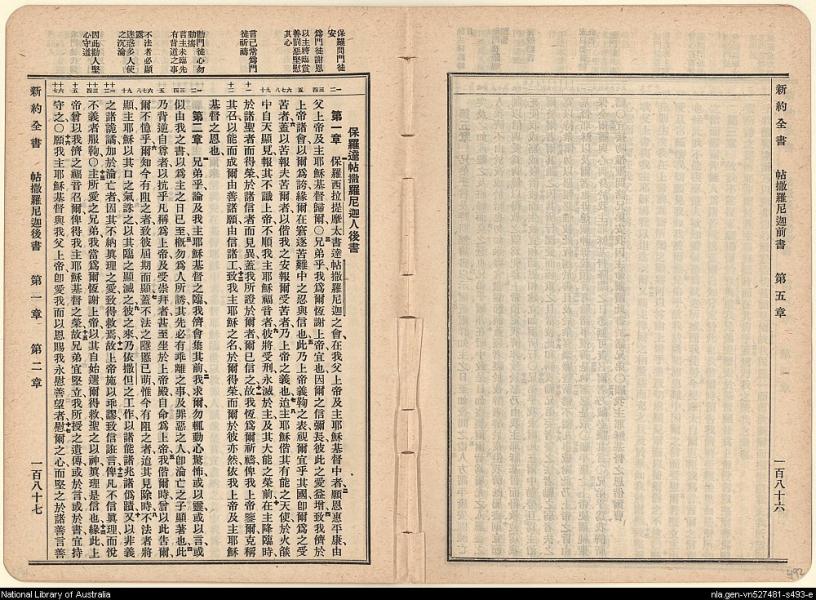 新約全書 帖撒羅尼迦前書 第五章 一百八十六
保羅問門徒安
爲門徒謝恩
以主將臨賞善罰惡堅慰其心
言己常爲門徒祈禱
勸門徒心勿動搖
言主未臨先有背道之事
不法者必顯露
迷惑多人使之沉淪
因此勸人堅心守道
保羅達帖撒羅尼迦人後書
第一章 保羅西拉提摩太書達帖撒羅尼迦之會在我父上帝及主耶穌基督中者願恩惠平康由
父上帝及主耶穌基督歸爾〇兄弟乎我爲爾恆謝上帝宜也因爾之信彌長彼此之愛益增致我儕於
上帝諸會以爾爲誇緣爾在窘逐苦難中之忍與信也此乃上帝義鞫之表視爾宜乎其國卽爾爲之受
苦者蓋以苦報夫苦爾者以偕我之安報爾受苦者乃上帝之義也迨主耶穌偕其有能之天使於火燄
中自天顯見報其不識上帝不順我主耶穌福音者彼將受刑永滅於主及其大能之榮前在主降臨時
於諸聖者而得榮於諸信者而見異蓋我所證於爾者爾已信之故我恆爲爾祈禱俾我上帝鑒爾克稱
其召以能而成爾由善諸願由信諸工致我主耶穌之名於爾得榮而爾於彼亦然依我上帝及主耶穌
基督之恩也
第二章 兄弟乎論及我主耶穌基督之臨我儕會集其前我求爾勿輒動心驚怖或以靈或以言或
似由我之書以爲主之日已至概勿爲人所誘其先必有乖離之事及罪惡之人卽淪亡之子顯著也此
乃背逆自尊者以抗乎凡稱爲上帝及受崇拜者甚至坐於上帝殿自命爲上帝我偕爾時曾以此告爾
爾不憶乎爾知今有阻之者致彼屆期而顯蓋不法之隱匿已萌惟今有阻之者迨其見除時不法者將
顯主耶穌以其口之氣誅之以其臨之顯滅之彼之來乃依撒但之工作以諸能諸兆諸僞蹟又以非義
之諸詭譎加於淪亡者因其不納眞理之愛致得救焉故上帝施以乖謬致信誑言俾凡不信眞理而悅
不義者服鞫〇主所愛之兄弟我當爲爾恆謝上帝以其自始選爾得救聖之以神眞理是信也緣此上
帝曾以我儕之福音召爾俾得我主耶穌基督之榮故兄弟宜堅立我所授之遺傳或於言或於書宜持
守之〇願我主耶穌基督與我父上帝卽愛我而以恩賜我永慰善望者慰爾之心而堅之於諸善言善
新約全書 帖撒羅尼迦後書 第一章 第二章 一百八十七
492
National Library of Australia
nla.gen-vn527481-s493-e